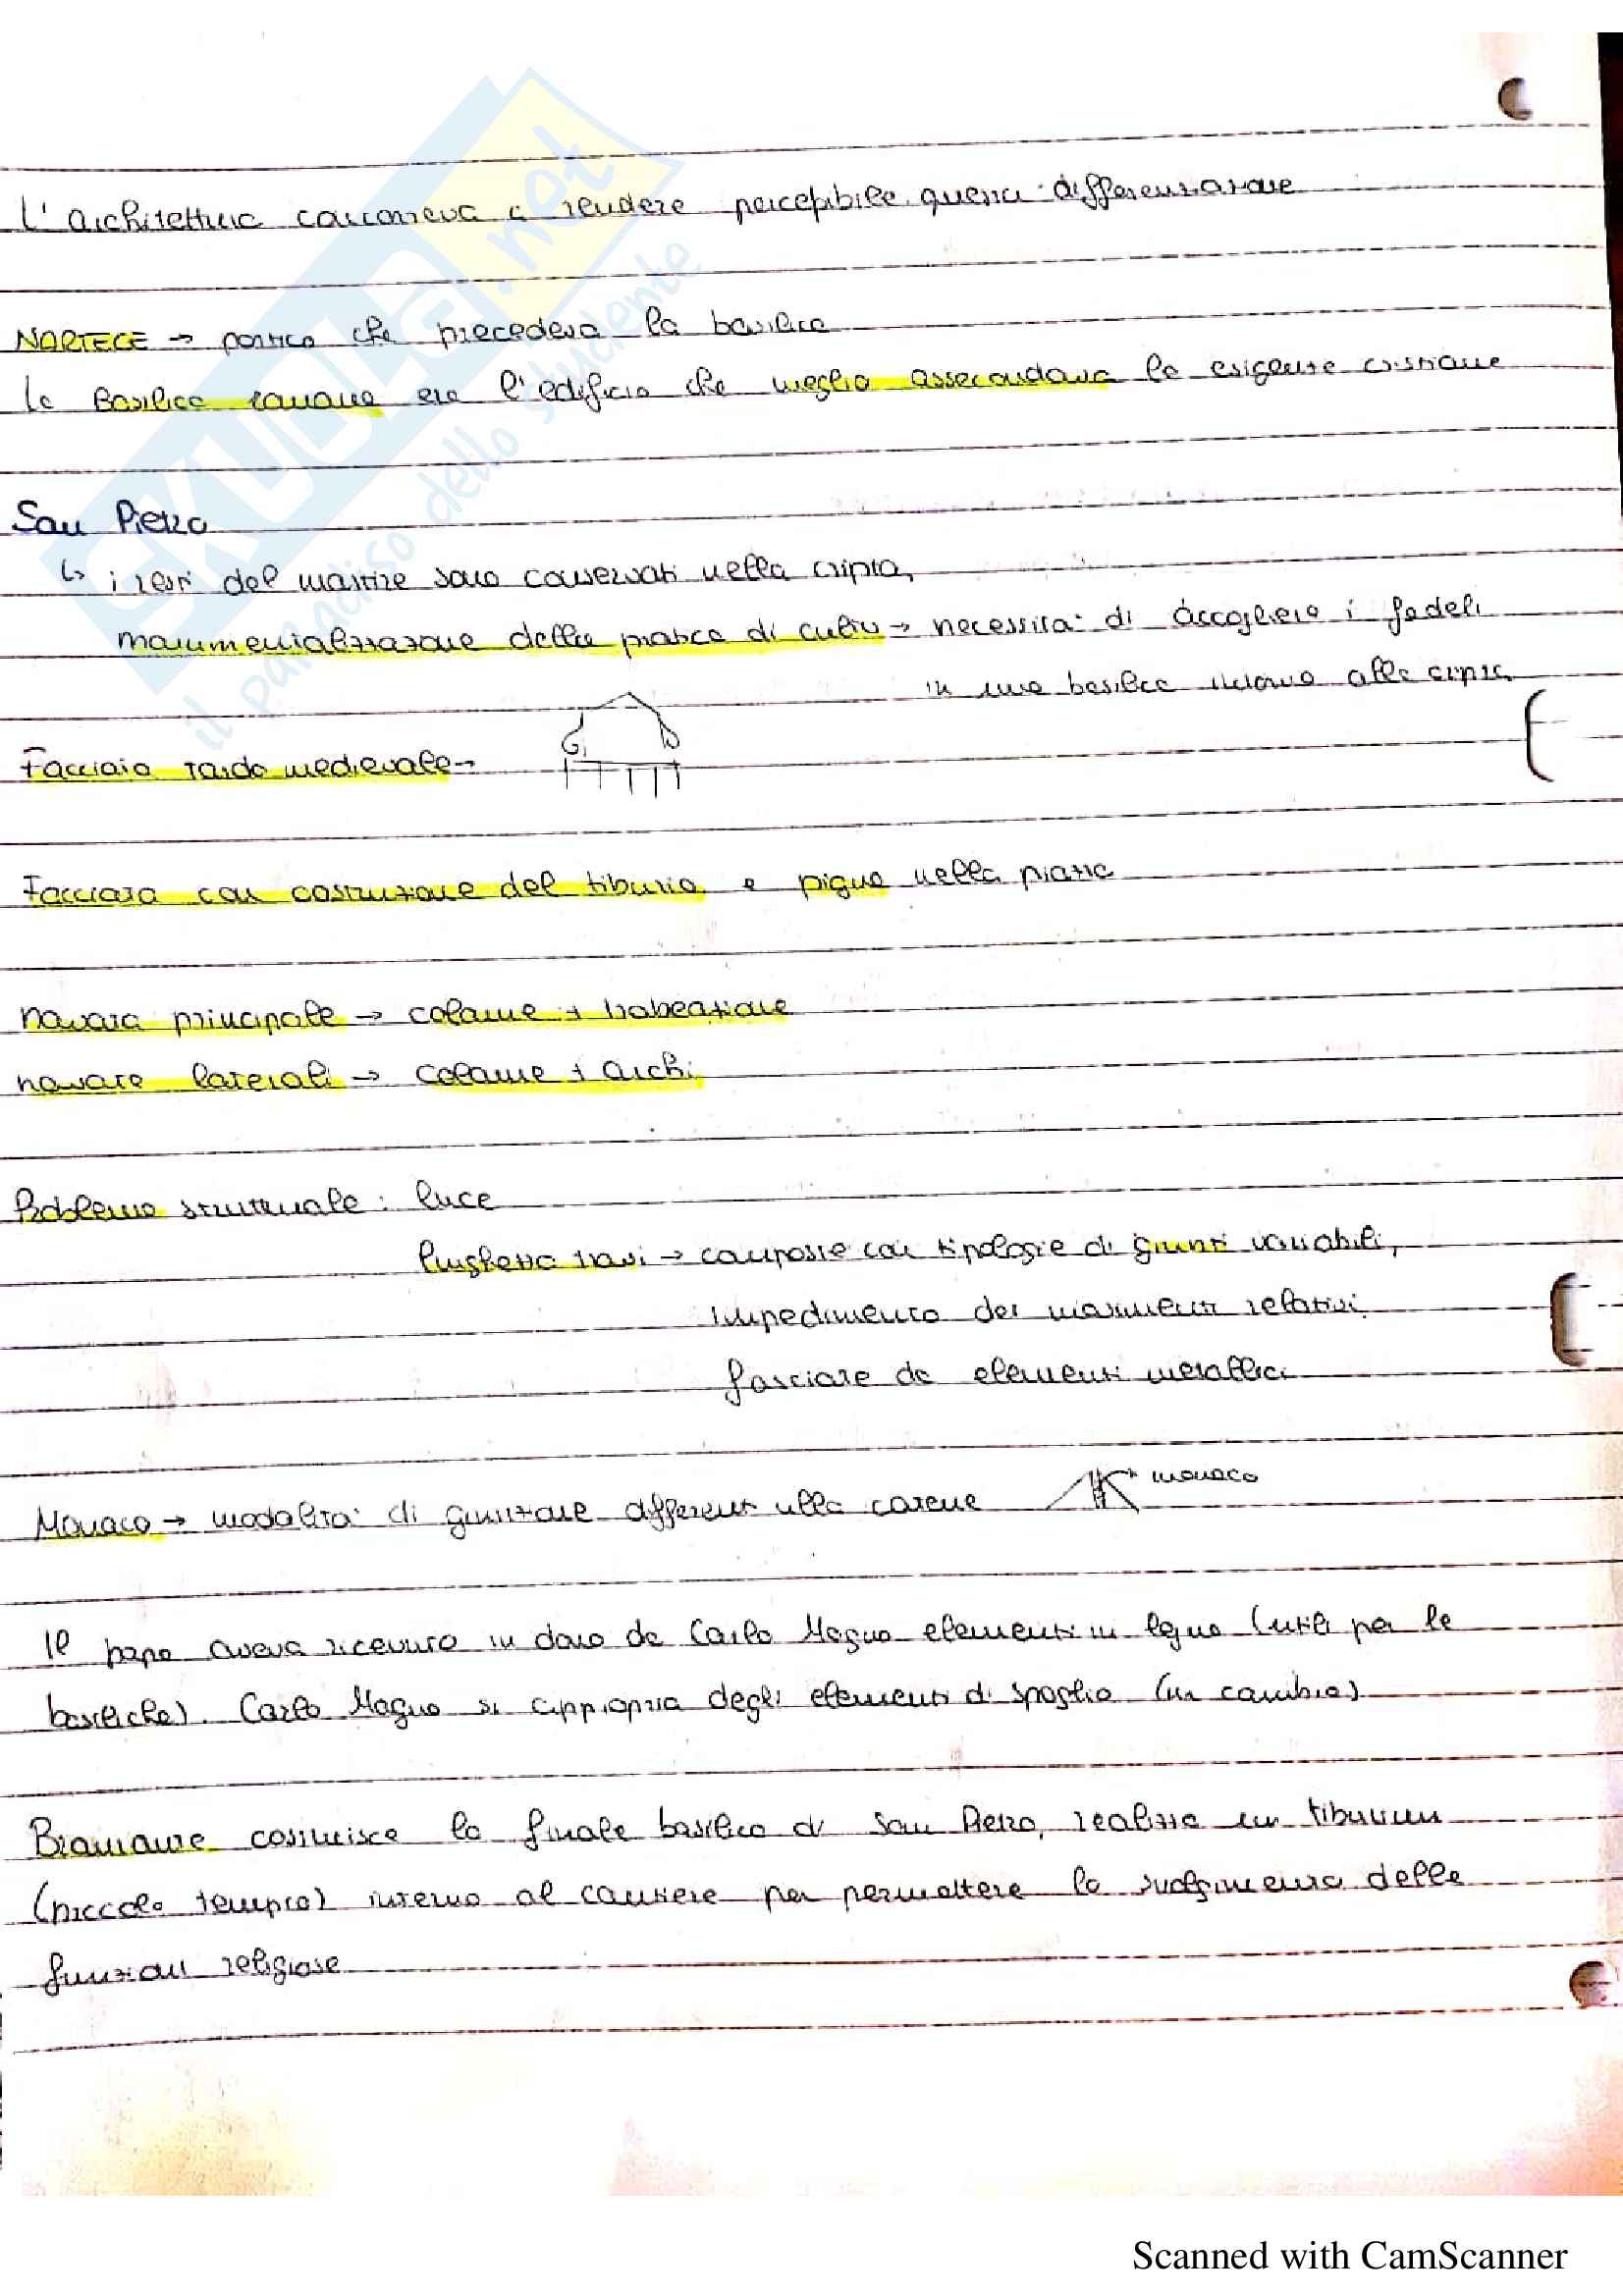 L'architettura concorreva a rendere percepibile questa differenziazione
NARTECE → portico che precedeva la basilica
la Basilica romana era l'edificio che meglio assecondava le esigenze cristiane
San Pietro
↳ i resti del martire sono conservati nella cripta,
monumentalizzazione della pratica di culto → necessità di accogliere i fedeli
in una basilica intorno alla cripta
Facciata tardo medievale →
Facciata con costruzione del tiburio e pigna nella piazza
navata principale → colonne + trabeazione
navate laterali → colonne + archi
Problema strutturale: luce
lunghezza travi → composte con tipologie di giunti variabili,
impedimento dei movimenti relativi
fasciate da elementi metallici
Monaco → modalità di giunzione differenti alla catene
monaco
Il papa aveva ricevuto in dono da Carlo Magno elementi in legno (utili per le
basiliche). Carlo Magno si appropria degli elementi di spoglio (in cambio)
Bramante costruisce la finale basilica di San Pietro, realizza un tiburium
(piccolo tempio) interno al cantiere per permettere lo svolgimento delle
funzioni religiose
SKUOLA.net
il paradiso dello studente
Scanned with CamScanner